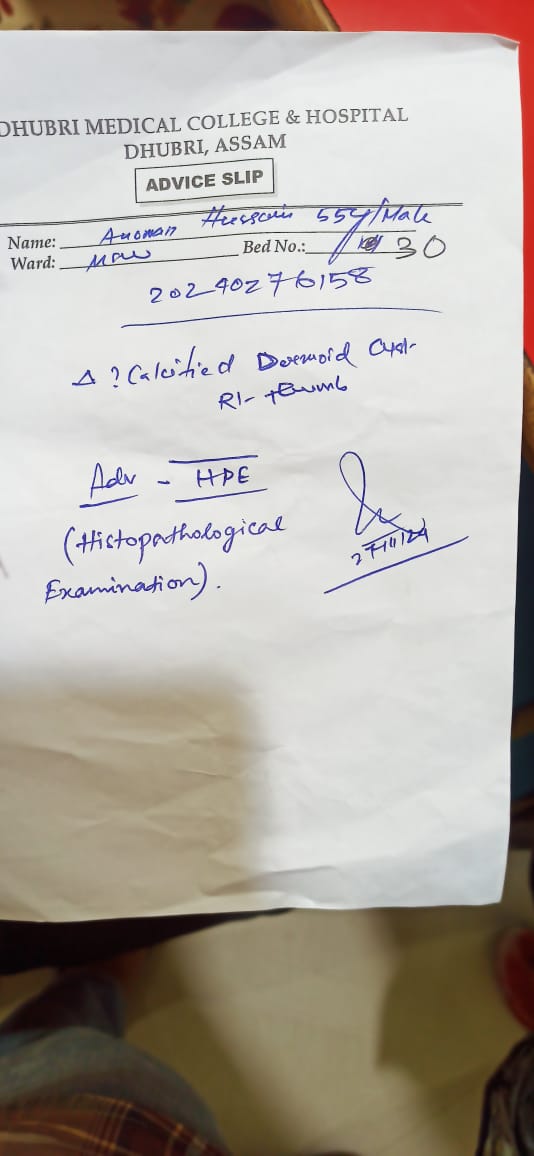 DHUBRI MEDICAL COLLEGE & HOSPITAL
DHUBRI, ASSAM
ADVICE SLIP
Name: Anoman Hussain 55y/Male
Ward: Bed No.: 30
20240276158
Δ ? Calcified Dermoid Cyst
Rt- thumb
Adv - HPE
(Histopathological
Examination).
27/11/24